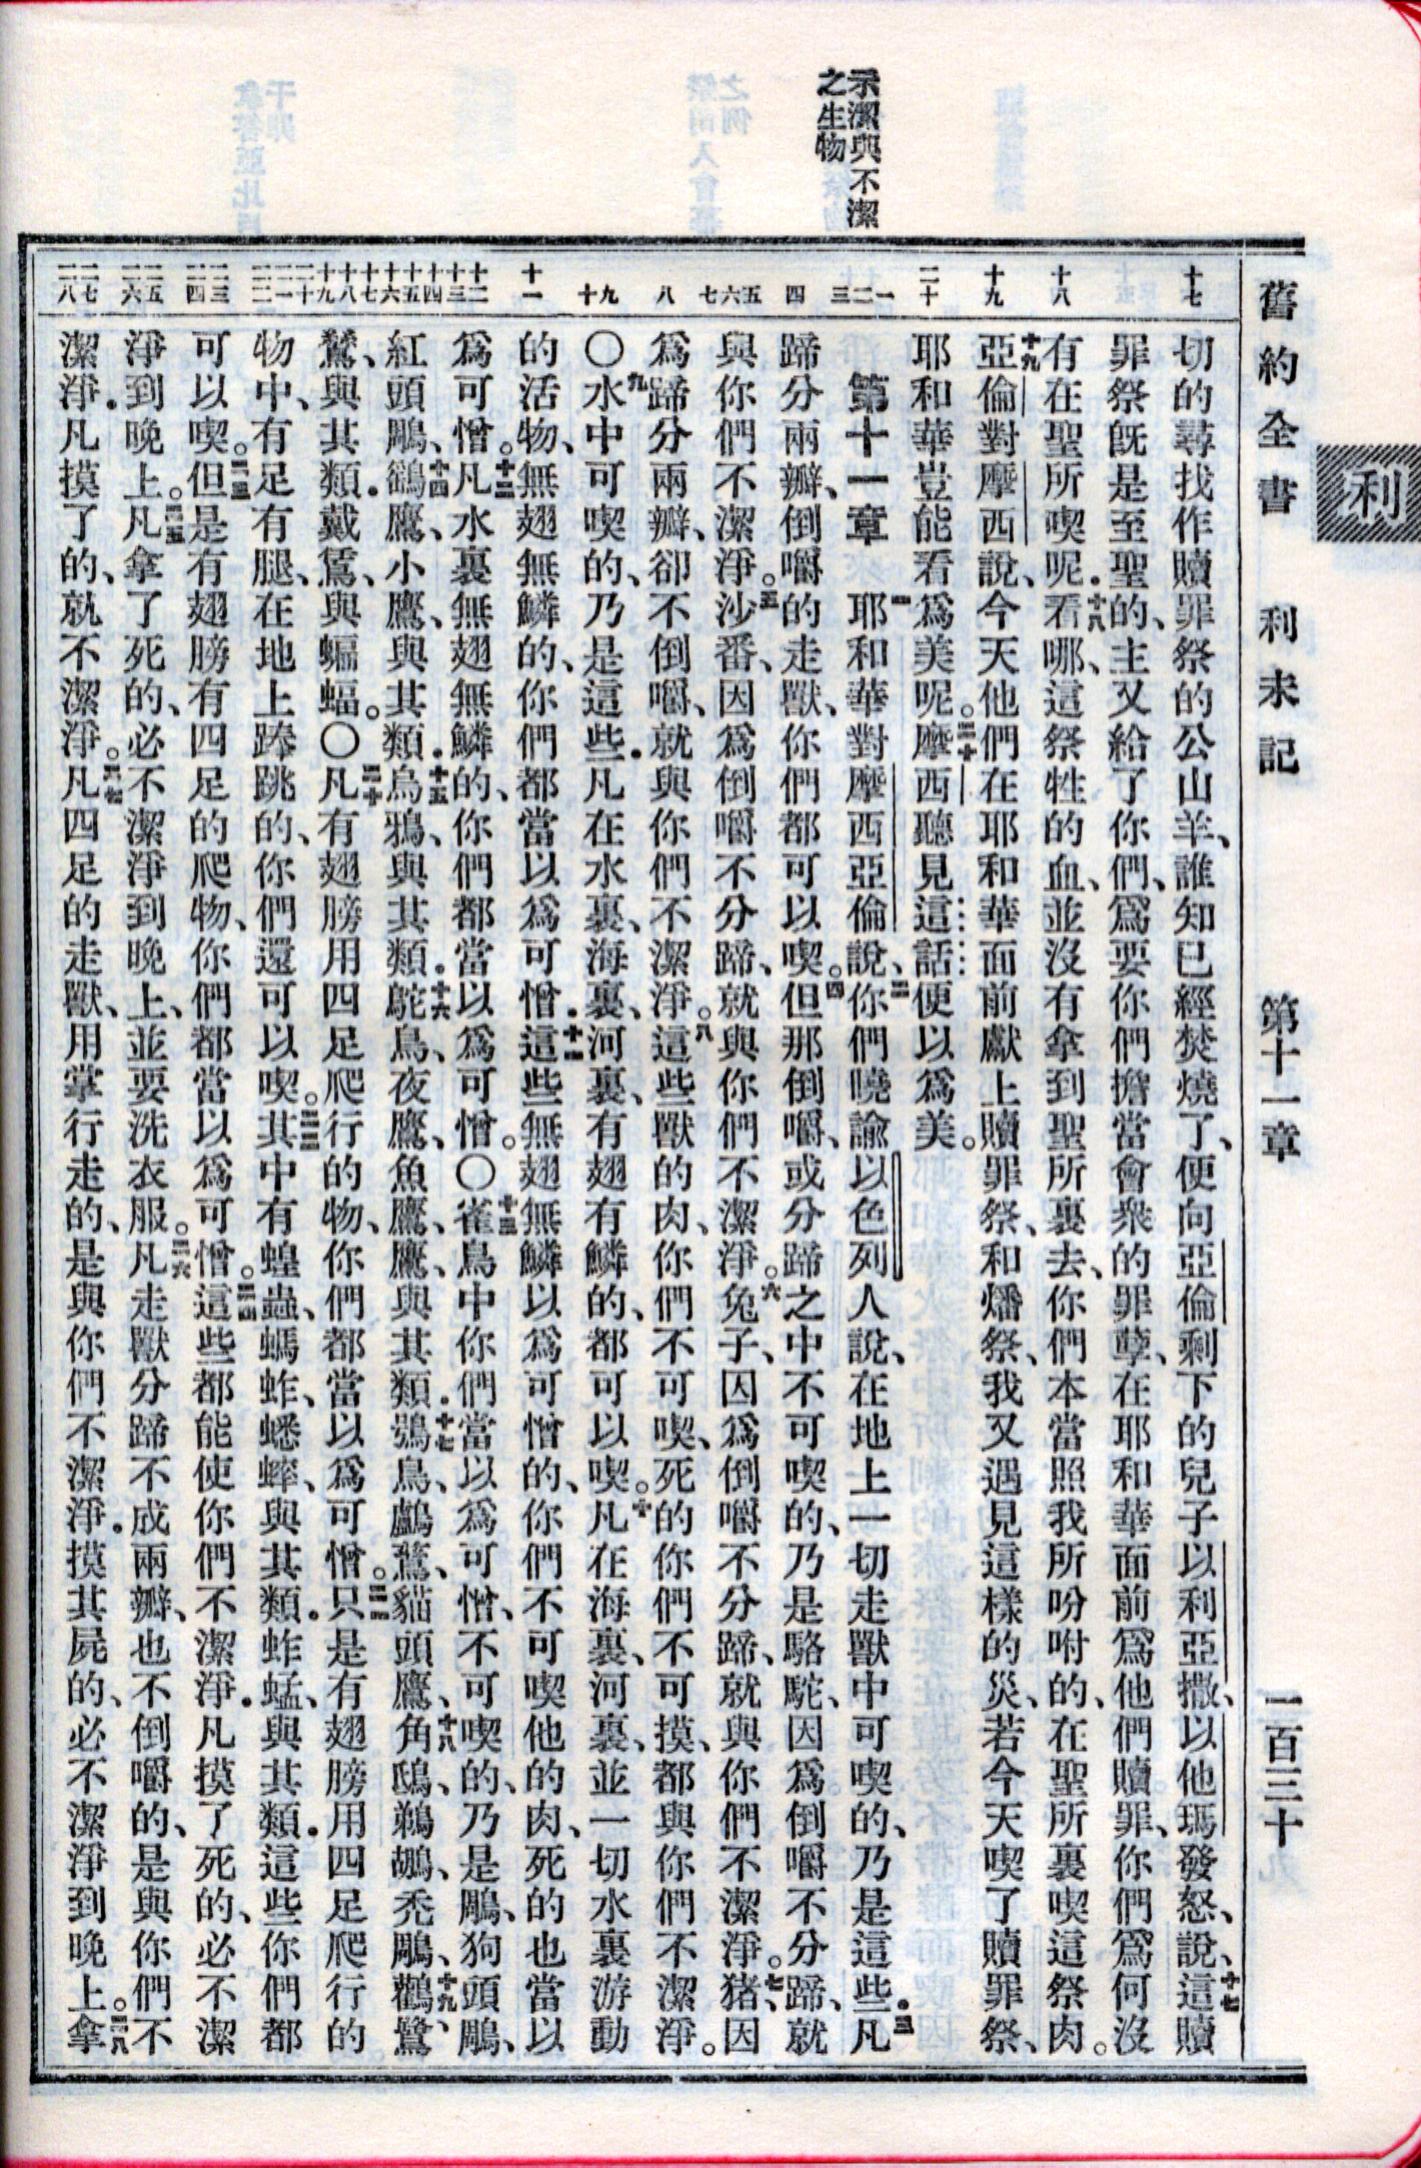 示潔與不潔
之生物
利
舊約全書　利未記　第十一章　一百三十
十七　十八　十九　二十　一　二　三　四　五　六　七　八　九　十　十一　十二　十三　十四　十五　十六　十七　十八　十九　二十　二一　二二　二三　二四　二五　二六　二七　二八
切的尋找作贖罪祭的公山羊、誰知已經焚燒了、便向亞倫剩下的兒子以利亞撒、以他瑪發怒、說、十七這贖
罪祭旣是至聖的、主又給了你們、爲要你們擔當會衆的罪孽、在耶和華面前爲他們贖罪、你們爲何沒
有在聖所喫呢．十八看哪、這祭牲的血、並沒有拿到聖所裏去、你們本當照我所吩咐的、在聖所裏喫這祭肉。
十九亞倫對摩西說、今天他們在耶和華面前獻上贖罪祭、和燔祭、我又遇見這樣的災、若今天喫了贖罪祭、
耶和華豈能看爲美呢。二十摩西聽見這話便以爲美。
第十一章　一耶和華對摩西亞倫說、二你們曉諭以色列人說、在地上一切走獸中可喫的、乃是這些．三凡
蹄分兩瓣、倒嚼的走獸、你們都可以喫。四但那倒嚼、或分蹄之中不可喫的、乃是駱駝、因爲倒嚼不分蹄、就
與你們不潔淨。五沙番、因爲倒嚼不分蹄、就與你們不潔淨。六兔子、因爲倒嚼不分蹄、就與你們不潔淨。七猪、因
爲蹄分兩瓣、卻不倒嚼、就與你們不潔淨。八這些獸的肉、你們不可喫、死的你們不可摸、都與你們不潔淨。
〇九水中可喫的、乃是這些．凡在水裏、海裏、河裏、有翅有鱗的、都可以喫。十凡在海裏、河裏、並一切水裏游動
的活物、無翅無鱗的、你們都當以爲可憎．十一這些無翅無鱗以爲可憎的、你們不可喫他的肉、死的也當以
爲可憎。十二凡水裏無翅無鱗的、你們都當以爲可憎。〇十三雀鳥中你們當以爲可憎、不可喫的、乃是鵰、狗頭鵰、
紅頭鵰、十四鷂鷹、小鷹、與其類．十五烏鴉、與其類．十六鴕鳥、夜鷹、魚鷹、鷹、與其類．十七鴞鳥、鸕鶿、貓頭鷹、十八角鴟、鵜鶘、禿鵰、十九鸛、鷺
鷥、與其類．戴鵀、與蝙蝠。〇二十凡有翅膀用四足爬行的物、你們都當以爲可憎。二一只是有翅膀用四足爬行的
物中、有足有腿、在地上踤跳的、你們還可以喫。二二其中有蝗蟲、螞蚱、蟋蟀、與其類．蚱蜢、與其類．這些你們都
可以喫。二三但是有翅膀有四足的爬物、你們都當以爲可憎。二四這些都能使你們不潔淨．凡摸了死的、必不潔
淨到晚上。二五凡拿了死的、必不潔淨到晚上、並要洗衣服。二六凡走獸分蹄不成兩瓣、也不倒嚼的、是與你們不
潔淨．凡摸了的、就不潔淨。二七凡四足的走獸、用掌行走的、是與你們不潔淨．摸其屍的、必不潔淨到晚上。二八拿